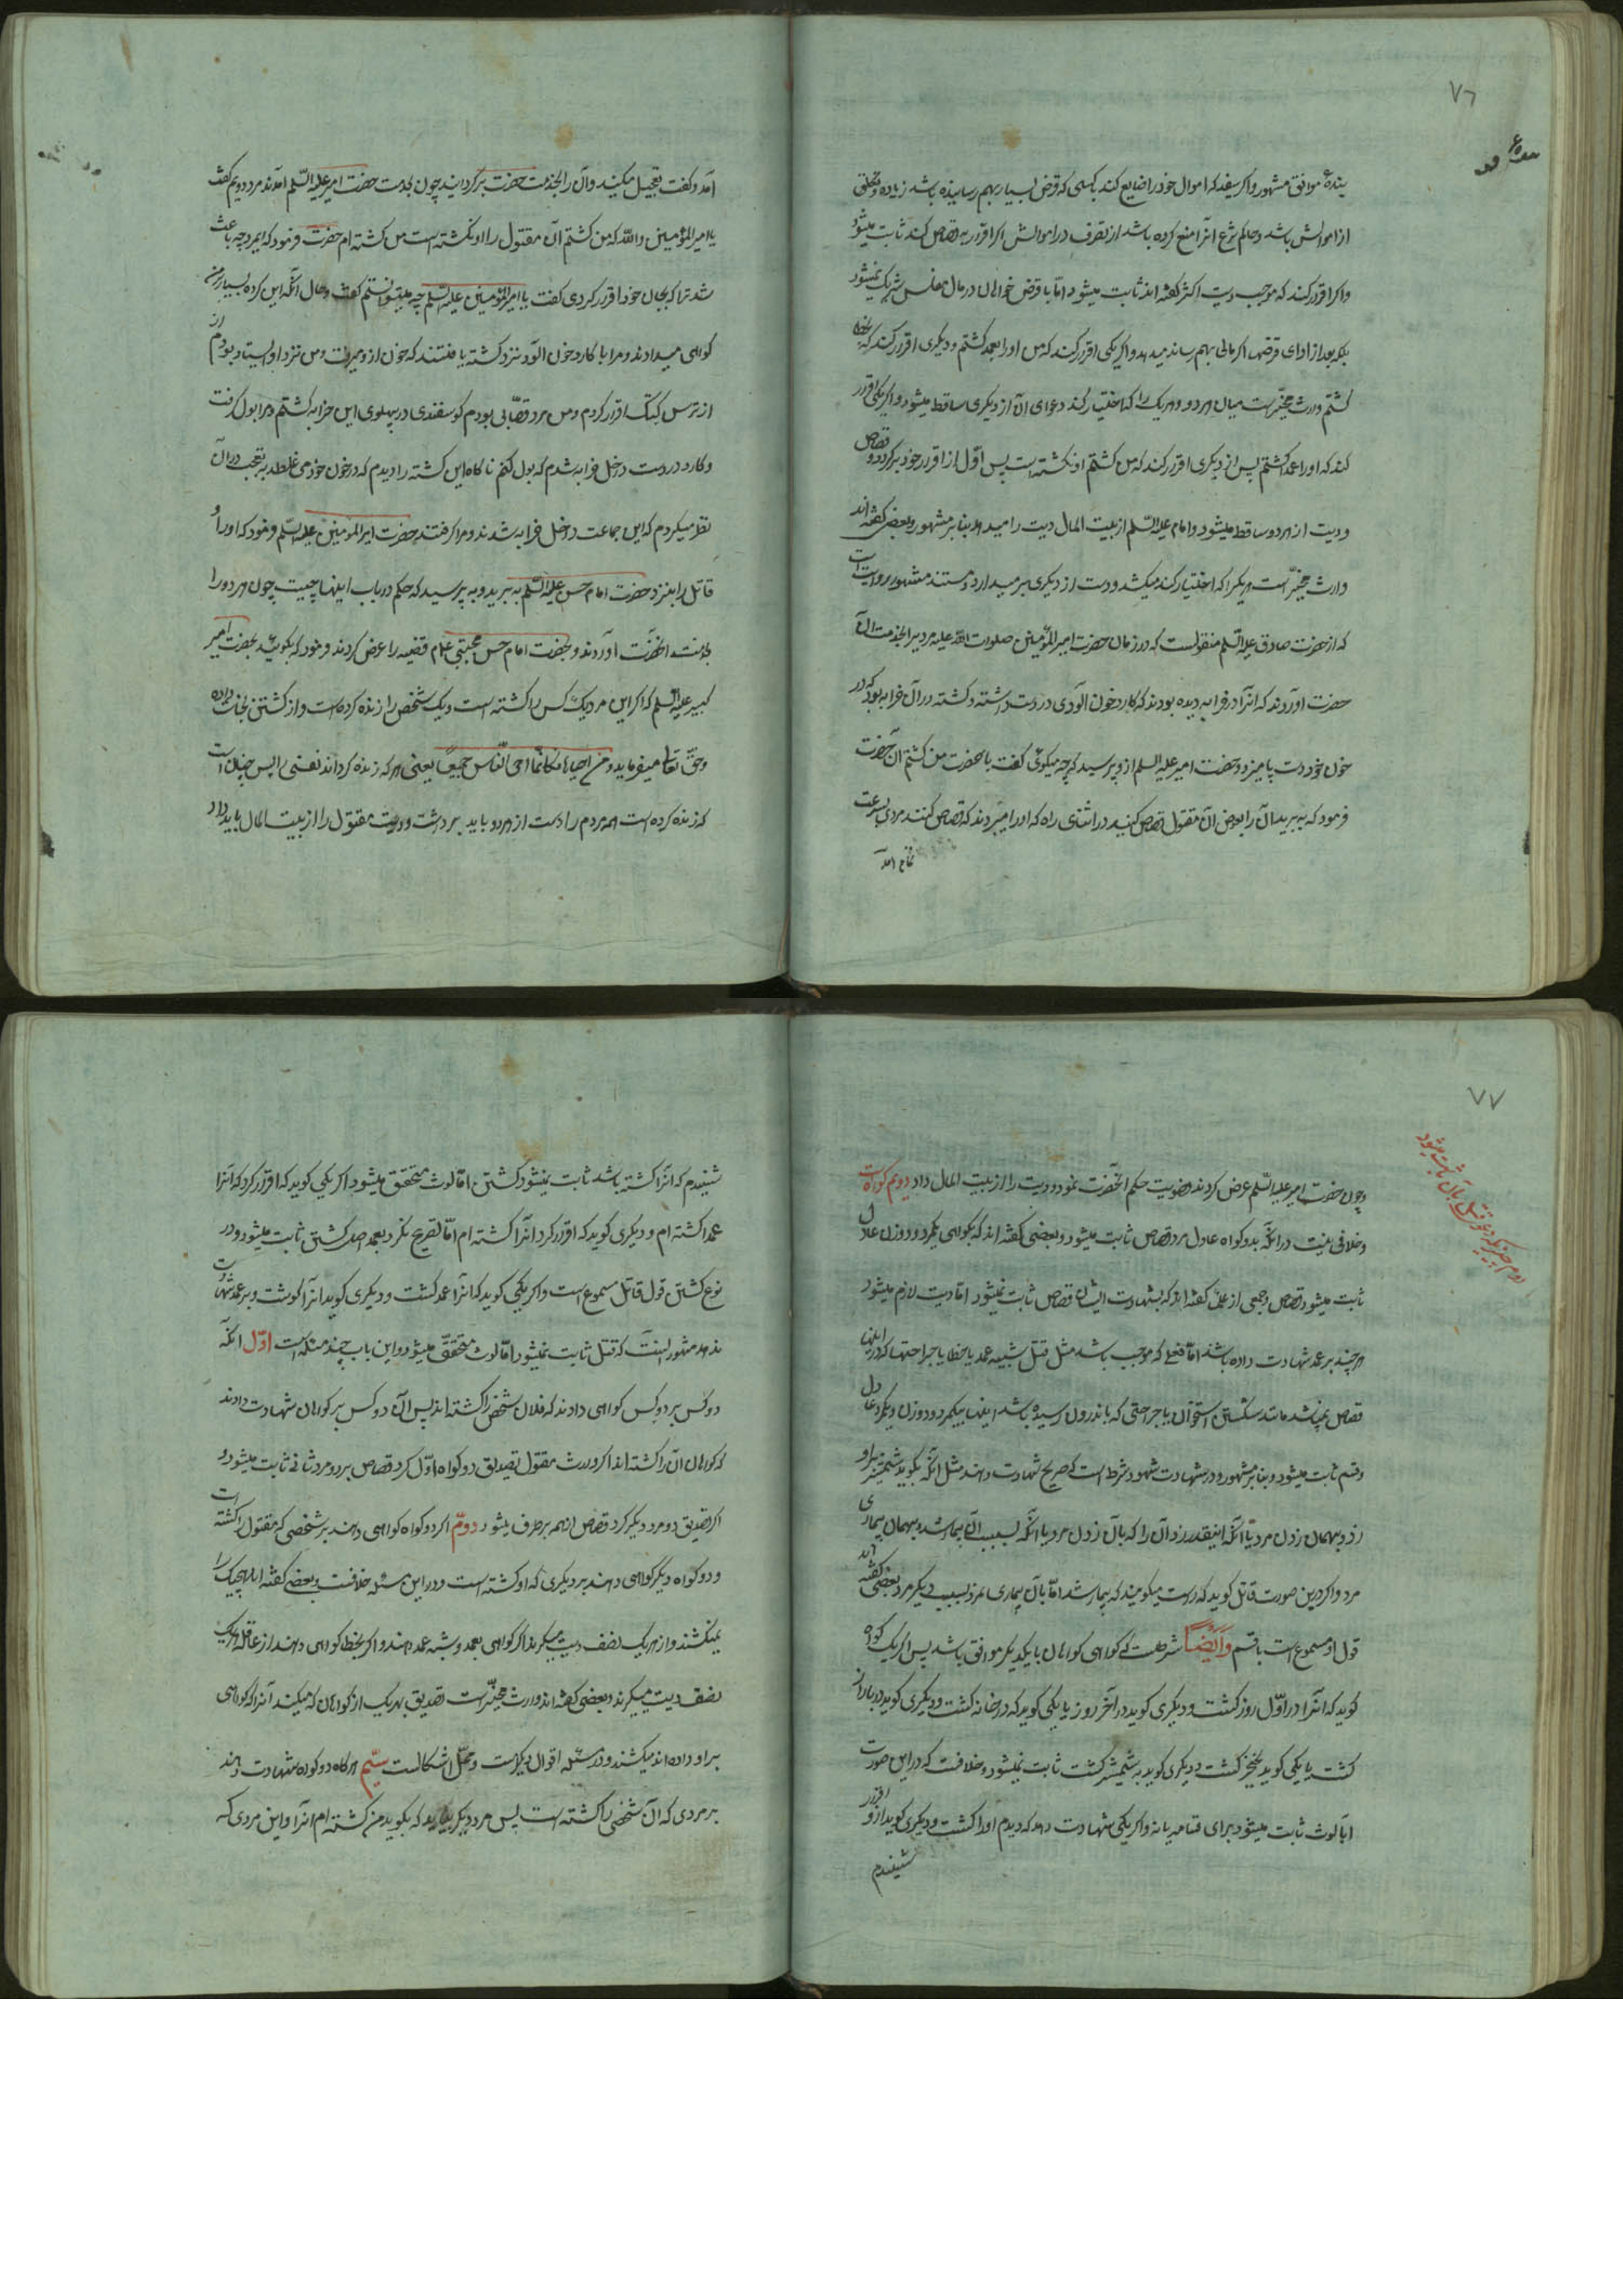 ٧٦
بندهٔ موافق مشهور و اکر سفیه که اموال خود را ضایع کند یا کسی که قرض بسیار بهم رسانیده باشد زیاده
از اموالش باشد و حاکم شرع آنرا منع کرده باشد از تصرف در اموالش اکر اقرار به قصاص کند ثابت میشود
و اکر اقرار کند که موجب دیت اکثر کفته اند ثابت میشود امّا با قرض خواهان در مال مفلس شریک نمیشود
بلکه بعد از ادای قرضها اکر مالی بهم رساند میدهد و اکر یکی اقرار کند که من او را بعمد کشتم و دیکری اقرار کند که بخطا
کشتم وارث مخیّر است میان هر دو و هر یک را که اختیار کند دعوای آن از دیکری ساقط میشود و اکر یکی اقرار
کند که او را عمداً کشتم پس از آن دیکری اقرار کند که من کشتم او نکشته است پس اوّل از اقرار خود بر کردد قصاص
و دیت از هر دو ساقط میشود و امام علیه السّلم از بیت المال دیت را میدهد بنا بر مشهور و بعضی کفته اند
وارث مخیّر است هر یکرا که اختیار کند میکشد و دست از دیکری بر میدارد و مستند مشهور روایت است
که از حضرت صادق علیه السّلم منقولست که در زمان حضرت امیر المؤمنین صلوات اللّه علیه مردیرا بخدمت آن
حضرت آوردند که آنرا در خرابه دیده بودند که کارد خون آلودی در دست داشته و کشته در آن خرابه بود که در
خون خود دست پا میزد و حضرت امیر علیه السلم از و پرسید که چه میکوئی کفت یا حضرت من کشتم آن حضرت
فرمود که به برید آن را بعوض آن مقتول قصاص کنید در اثنای راه که او را میبردند که قصاص کنند مردی بسرعت
تمام آمد
آمد و کفت تعجیل مکنید و آن را بخدمت حضرت بر کردانید چون بخدمت حضرت امیر علیه السّلم آمدند مرد دویم کفت
یا امیر المؤمنین و اللّه که من کشتم آن مقتول را او نکشته است من کشته ام حضرت فرمود که ایمرد چه باعث
شد ترا که بجان خود اقرار کردی کفت یا امیر المؤمنین علیه السّلم چه میتوانستم کفت و حال آنکه این کرده بسیار بر من
کواهی میدادند و مرا با کارد خون آلود نزد کشته یافتند که خون از و میرفت و من نزد او ایستاده بودم از
از ترس کتک اقرار کردم و من مرد قصّابی بودم کوسفندی در پهلوی این خرابه کشتم و مرا بول کرفت
و کارد در دست داخل خرابه شدم که بول کنم ناکاه این کشته را دیدم که در خون خود می غلطد به تعجب در آن
نظر میکردم که این جماعت داخل خرابه شدند و مرا کرفتند حضرت امیر المؤمنین علیه السّلم فرمود که او را و
قاتل را بنزد حضرت امام حسن علیه السّلم به برید و به پرسید که حکم در باب اینها چیست چون هر دو را
بخدمت آنحضرت آوردند و بحضرت امام حسن مجتبی قضیه را عرض کردند فرمود که بکوئید بحضرت امیر
کبیر علیه السلم که اکر این مرد یک کس را کشته است و یک شخص را زنده کرده است و از کشتن نجات داده
و حقّ تعالی میفرماید و من احیاها فکانّما احی النّاس جمیعاً یعنی هر که زنده کرداند نفسی را پس چنان است
که زنده کرده است همه مردم را دست از هر دو باید برداشت و دیت مقتول را از بیت المال باید داد
٧٧
دوم چیزیکه دعوی قتل بآن ثابت میشود
و چون حضرت امیر علیه السّلم عرض کردند تصویب حکم آنحضرت نمود و دیت را از بیت المال داد دویم کواه است
و خلافی نیست در آنکه بدو کواه عادل مرد قصاص ثابت میشود و بعضی کفته اند که بکواهی یکمرد و دو زن عادل
ثابت میشود قصاص و جمعی از علما کفته اند که بشهادت ایشان قصاص ثابت نمیشود امّا دیت لازم میشود
هر چند بر عمد شهادت داده باشند امّا قتلی که موجب باشد مثل قتل شبیه عمد یا خطا یا جراحتها که در اینها
قصاص نمیباشد مانند شکستن استخوان یا جراحتی که باندرون رسیده باشد اینها بیکمرد و دو زن و یکمرد عادل
و قسم ثابت میشود و بنا بر مشهور و در شهادت شهود شرط است که صریح شهادت دهند مثل آنکه بکویند شمشیر بر او
زد و بهمان زدن مرد یا آنکه اینقدر زد آن را که بآن زدن مرد یا آنکه بسبب آن بیمار شد و بهمان بیماری
مرد و اکر درین صورت قاتل کوید که راست میکویند که بیمار شد امّا بآن بیماری نمرد بسبب دیکر مرد بعضی کفته اند
قول او مسموع است با قسم و ایضاً شرطست که کواهی کواهان با یکدیکر موافق باشد پس اکر یک کواه
کوید که آنرا در اوّل روز کشت و دیکری کوید در آخر روز یا یکی کوید که در خانه کشت و دیکری کوید در بازار
کشت یا یکی کوید بخنجر کشت و دیکری کوید به شمشیر کشت ثابت نمیشود و خلافست که در این صورت
آیا لوث ثابت میشود برای قسامه یا نه و اکر یکی شهادت دهد که دیدم او را کشت و دیکری کوید از و اقرار
شنیدم
شنیدم که آنرا کشته باشد ثابت نمیشود کشتن امّا لوث متحقق میشود اکر یکی کوید که اقرار کرد که آنرا
عمداً کشته ام و دیکری کوید که اقرار کرد آنرا کشته ام امّا تصریح نکرد بعمد اصل کشتن ثابت میشود و در
نوع کشتن قول قاتل مسموع است و اکر یکی کوید که آنرا عمداً کشت و دیکری کوید آنرا کشت و بر عمد شهادت
ندهد مشهور اینست که قتل ثابت نمیشود امّا لوث متحقّق میشود و این باب چند مسئله است اوّل آنکه
دو کس بر دو کس کواهی دادند که فلان شخص را کشته اند پس آن دو کس بر کواهان شهادت دادند
که کواهان آن را کشته اند اکر وارث مقتول تصدیق دو کواه اوّل کرد قصاص بر دو مرد ثانی ثابت میشود و
اکر تصدیق دو مرد دیکر کرد قصاص از همه بر طرف میشود دوّم اکر دو کواه کواهی دهند بر شخصی که مقتول را کشته است
و دو کواه دیکر کواهی دهند بر دیکری که او کشته است و در این مسئله خلافست بعضی کفته اند هیچیک را
نمیکشند و از هر یک نصف دیت میکیرند اکر کواهی بعمد و شبه عمد دهند و اکر بخطا کواهی دهند از عاقله هر یک
نصف دیت میکیرند و بعضی کفته اند وارث مخیّر است تصدیق بهر یک از کواهان که میکند آنرا که کواهی
بر او داده اند میکشند و در مسئله اقوال دیکر است و محلّ اشکالست سیّم هر کاه دو کواه شهادت دهند
بر مردی که آن شخص را کشته است پس مرد دیکر بیاید که بکوید من کشته ام آنرا و این مردی که